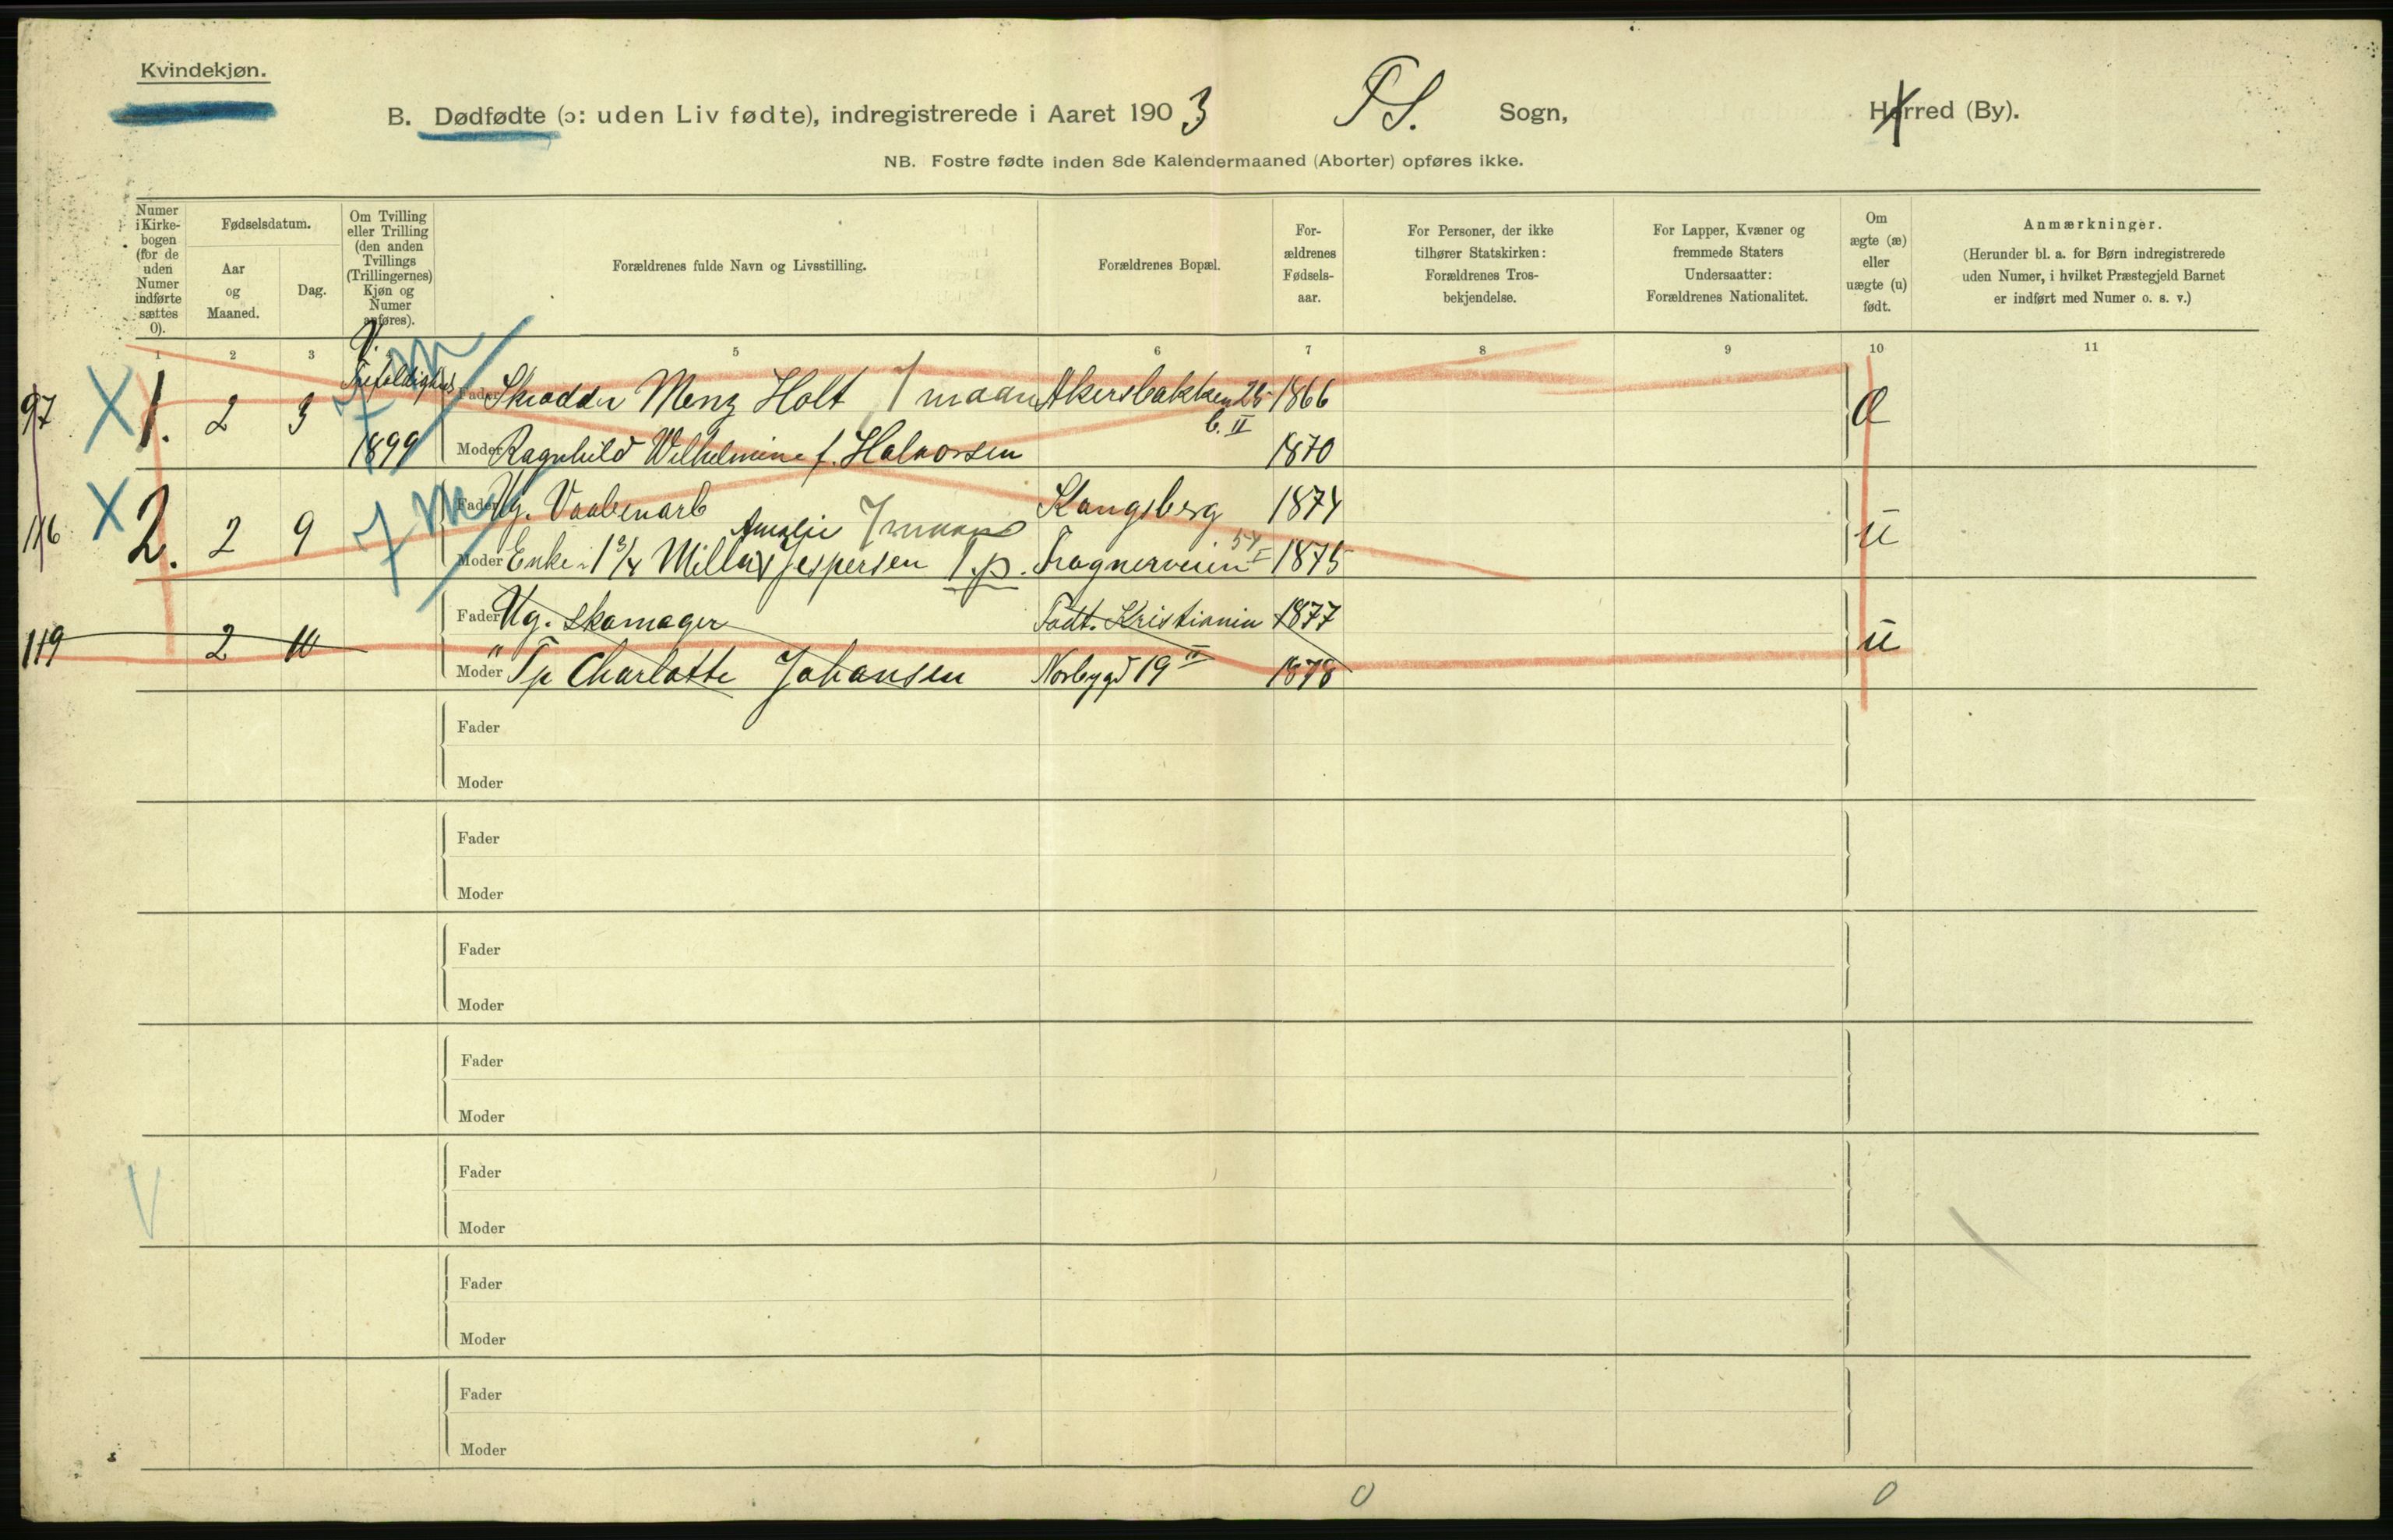 Kvindekjøn.
B. Dødfødte (ɔ: uden Liv fødte), indregistrerede i Aaret 1903 F. S. Sogn, Herred (By).
NB. Fostre fødte inden 8de Kalendermaaned (Aborter) opføres ikke.
Numer i Kirke- bogen (for de uden Numer indførte sættes 0).
Fødselsdatum.
Aar og Maaned.
Dag.
Om Tvilling eller Trilling (den anden Tvillings (Trillingernes) Kjøn og Numer anføres).
Forældrenes fulde Navn og Livsstilling.
Forældrenes Bopæl.
For- ældrenes Fødsels- aar.
For Personer, der ikke tilhører Statskirken: Forældrenes Tros- bekjendelse.
For Lapper, Kvæner og fremmede Staters Undersaatter: Forældrenes Nationalitet.
Om ægte (æ) eller uægte (u) født.
Anmærkninger.
(Herunder bl. a. for Børn indregistrerede uden Numer, i hvilket Præstegjeld Barnet er indført med Numer o. s. v.)
1 2 3 5 6 7 8 9 10 11
V. Trefoldighed 7 m
97 X 1. 2 3 Fader Skrædder Menz Holt 7 maan Akersbakken 25 1866 Æ
b. II
1899 Moder Ragnhild Wilhelmine f. Halvorsen 1870
Fader Ug. Vaabenarb Kongsberg 1874
116 X 2. 2 9 7 m Amalie 7 maan u
Moder Enke 1 3/4 Milla Jespersen T.p. Frognerveien 54 I 1875
Fader Ug. skomager Født. Kristiania 1877
119 2 10 u
Moder " Tp Charlotte Johansen Norbygd 19 II 1878
Fader
Moder
Fader
Moder
Fader
Moder
Fader
Moder
Fader
Moder
V
Fader
Moder
Fader
Moder
0 0